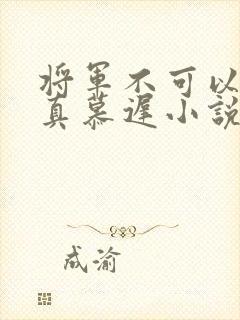 将軍不可以
真慕遲小說
成渝